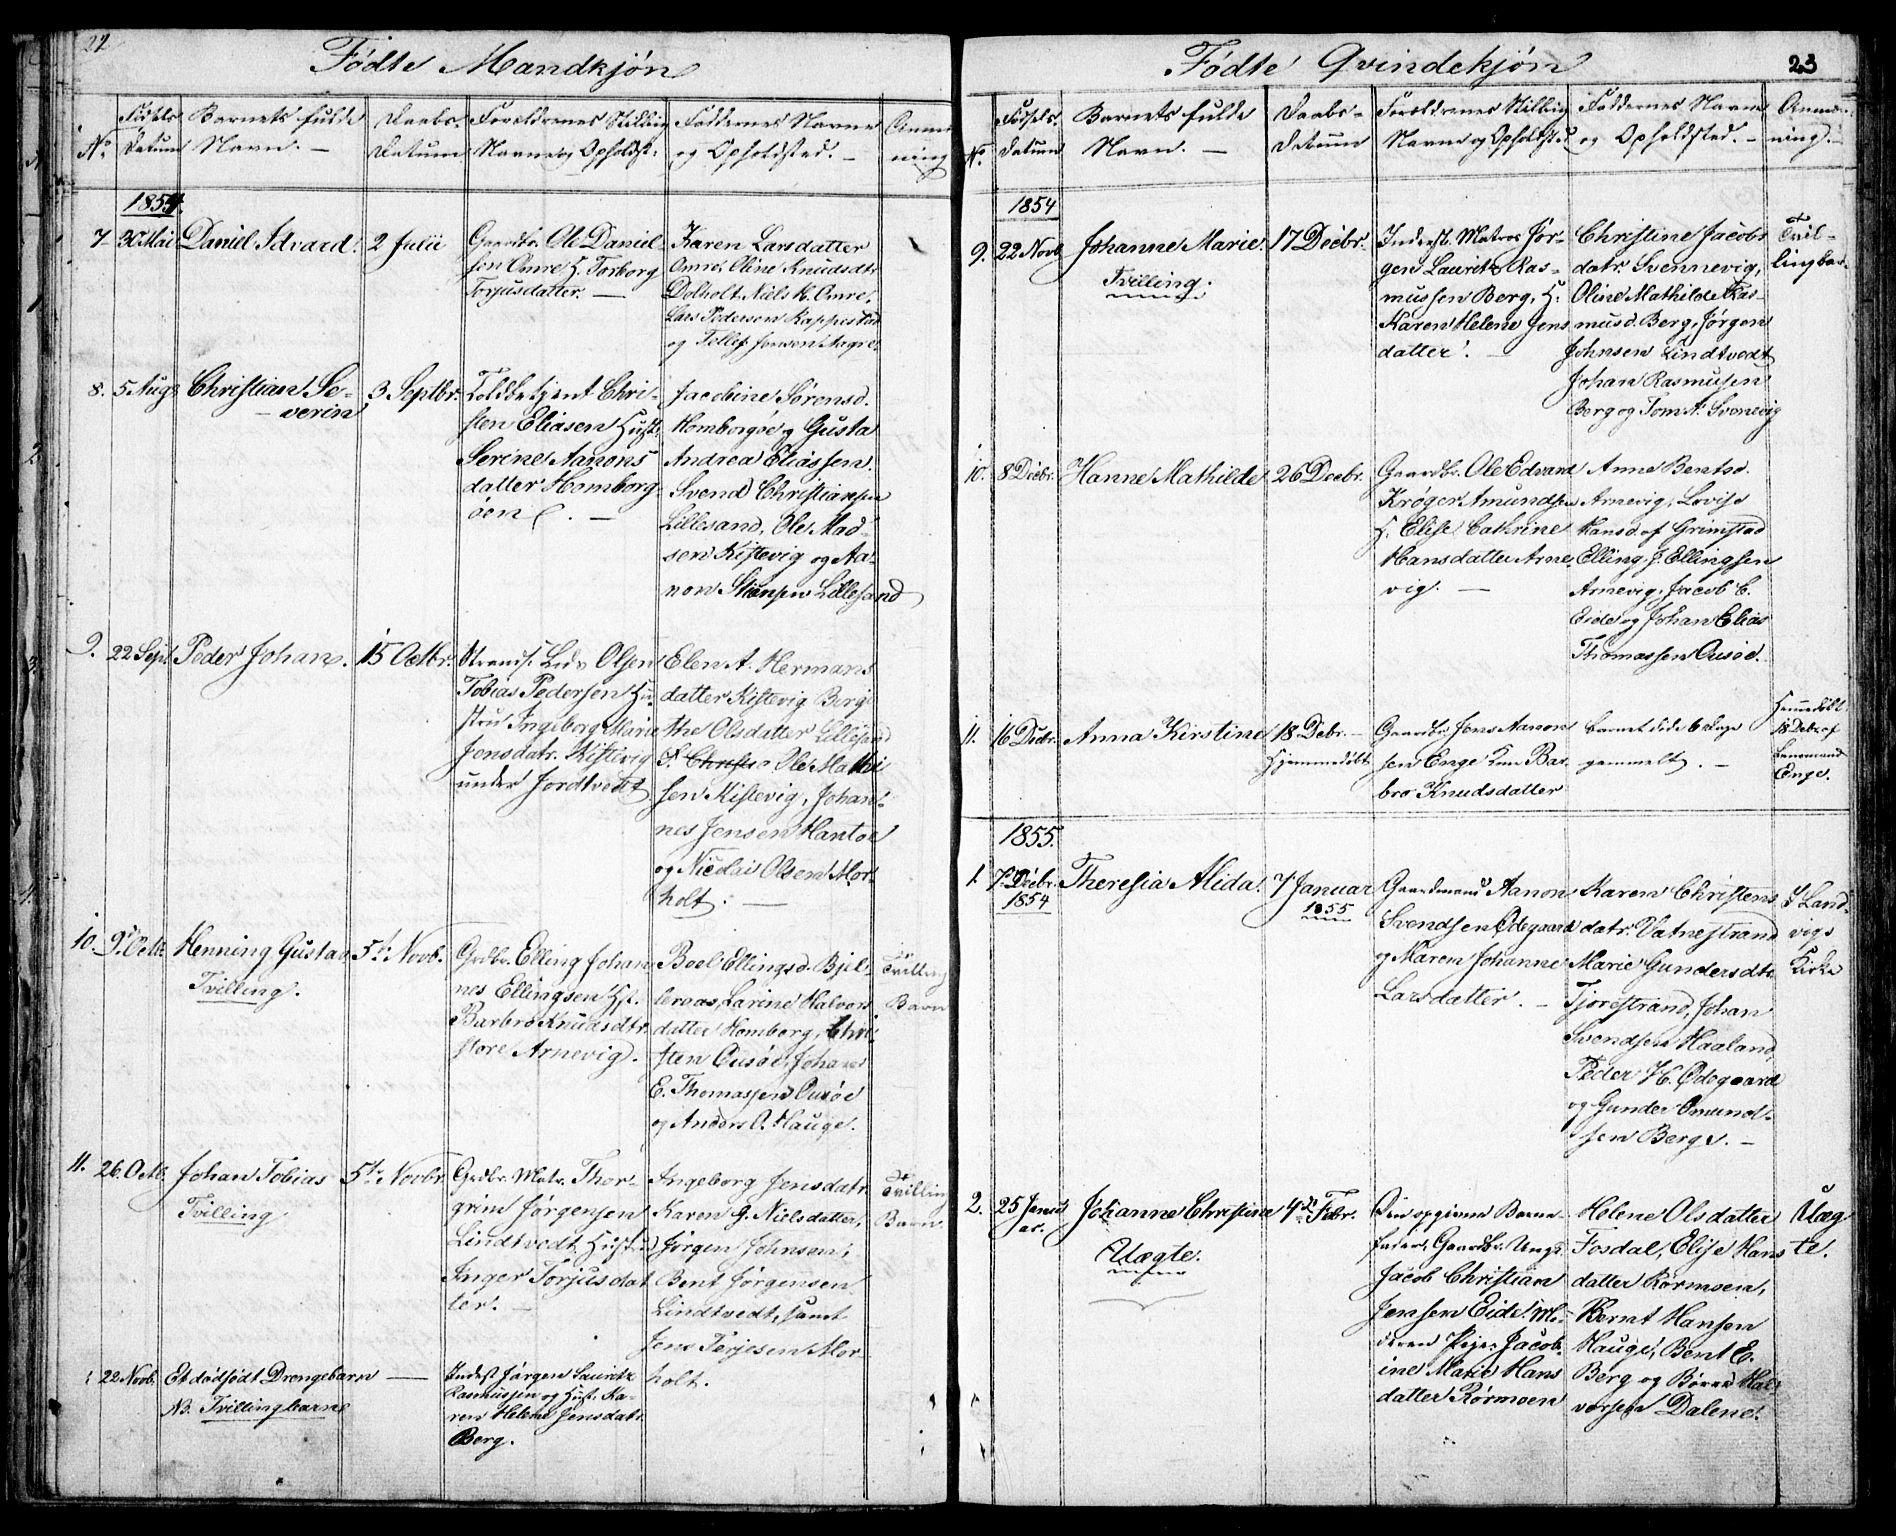 22
Fødte Mandkjøn
No.
Fødsels
Datum
Barnets fulde
Navn. —
Daabs-
Datum
Forældrenes Stilling
Navne og Opholdst.
Faddernes Navne
og Opholdsted. —
Anmær
ning
1854.
7
30 Mai
Daniel Edvard.
2 Julii
Gaardbr. Ole Daniel-
sen Omre H. Torborg
Torjusdatter. —
Karen Larsdatter
Omre, Oline Knudsdtr
Dolholt, Niels K. Omre,
Lars Pedersen Kappestad
og Tellef Jensen Aagre.
8.
5 Augs
Christian Se-
verin
3 Septbr.
Toldbetjent Chri-
sten Eliasen Hust.
Serine Aanons
datter Homborg-
öen. —
Jacobine Sørensd.
Homborgöe og Gusta
Andrea Eliassen.
Svend Christiansen
Lillesand, Ole Mad-
sen Kistevig og Aa-
non Lillesand
9.
22 Sept.
Peder Johan.
15 Octbr.
Strands. Olsen
Tobias Pedersen Hu-
stru Ingeborg Marie
Jensdatr. Kistevig
under Jordtvedt
Elen A. Hermans
datter Kistevig Berg
the Olsdatter Lillesand
Ole Mathi
sen Kistevig, Johan-
nes Jensen Hantoe
og Nicolai Olsen Mor-
holt. —
10.
9d Octb.
Henning Gustav
Tvilling.
5te Novb.
Grdbr. Elling Johan
nes Ellingsen Hst.
Barbro Knudsdtr.
store Arnevig.
Boel Ellingsd. Bjel-
leraas, Larine Halvors
datter Homborg, Chri-
sten Ousöe, Johan
E. Thomassen Ousöe
og Anders O. Hauge.
Tvilling
Barn
11.
26. Octb.
Johan Tobias
Tvilling
5te Novbr.
Grdbr. Matr. Thor-
grim Jørgensen
Lindtvedt, Hustru
Inger Torjusdat
ter. —
Ingeborg Jensdatr.
Karen G. Nielsdatter,
Jørgen Johnsen,
Bent Jørgensen
Lindtvedt, samt
Jens Terjesen Mor-
holt.
Tvilling
Barn.
22 Novb.
Et dødfødt Drengebarn —
NB. Tvillingbarn
Inderst Jørgen Lauritz
Rasmussen og Hust. Ka-
ren Helene Jensdatr.
Berg.
Fødte Qvindekjøn
23
No.
Fødsels.
Datum
Barnets fulde
Navn. —
Daabs-
Datum
Forældrenes Stilling
Navne og Opholdst.
Faddernes Navne
og Opholdsted. —
Anmær-
ning. —
1854
9.
22 Novb
Johanne Marie.
Tvilling.
17 Decbr.
Inderst. Matros Jør-
gen Lauritz Ras-
mussen Berg, H.
Karen Helene Jens
datter. —
Christine Jacobs
datr. Svennevig,
Oline Mathilde Ras-
musd. Berg, Jørgen
Johnsen Lindtvedt
Johan Rasmusen
Berg og Tom N. Svenevig
Tvil-
lingbar-
10.
8 Decbr.
Hanne Mathilde
26 Decbr.
Gaardbr. Ole Edvard
Krøger Amundsen
H. Elise Cathrine
Hansdatter Arne-
vig. —
Anne Bentsd.
Arnevig, Lovise
Hansd. af Grimstad
Elling J. Ellingsen
Arnevig, Jacob C.
Eide og Johan Elias
Thomassen Ousöe.
11.
16 Decbr.
Anna Kirstine
18 Debr. —
Hjemmedöbt
Gaardbr. Jens Aanon
sen Enge Kone Bar-
bro Knudsdatter
barnet döde 6 dage
gammelt. —
Hjemmedöbt
18 Debr. af
Lensmand
Enge.
1855.
1.
7de Decbr.
1854
Theresia Alida.
7 Januar
1855
Gaardmand Aanon
Svendsen Ødegaard
og Maren Johanne
Larsdatter. —
Karen Christens
datr. Vatnestrand
Marie Gundersdtr.
Tjorestrand, Johan
Svendsen Haaland,
Peder H. Ødegaard
og Gunder Omund-
sen Berge. —
I Land-
vigs
Kirke
2.
25 Janu
ar.
Johanne Christine
Uægte.
4de Febr.
Den opgivne Barne-
fader, Gaardbr. Ungk.
Jacob Christian
Jensen Eide. Mo-
deren Pige Jacob-
ine Marie Hans
datter Rørmoen
Helene Olsdatter
Fosdal, Elise Hans
datter Rørmoen,
Bernt Hansen
Hauge, Bent E.
Berg og Børre Hal-
vorsen Dalene.
Uæg
te.